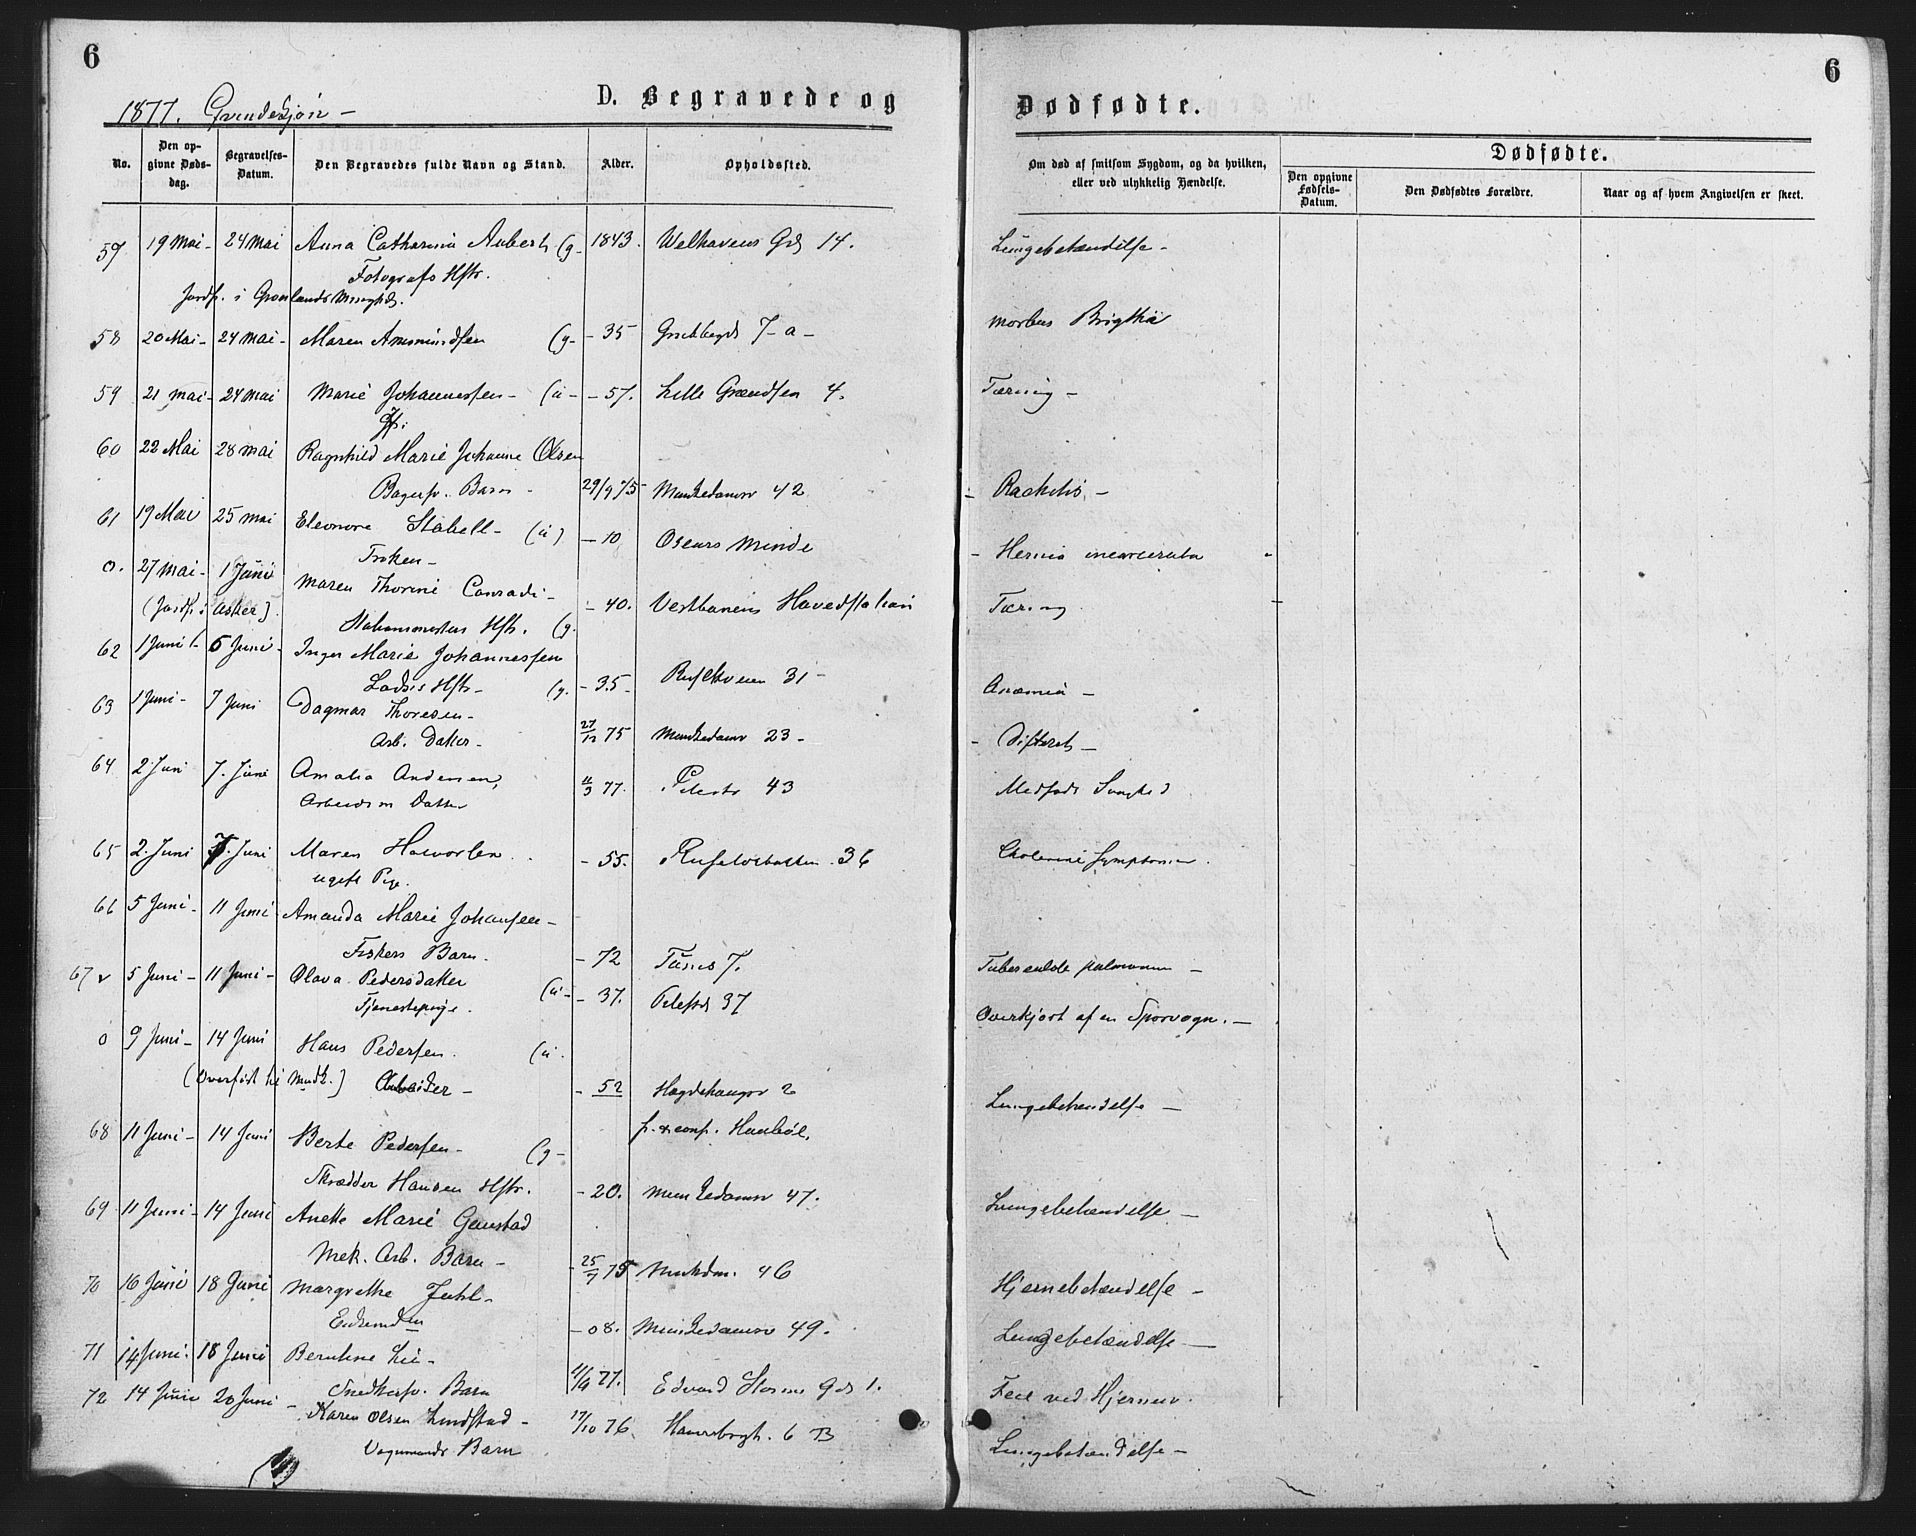 6
6
1877.
D. Begravede og
Dødfødte.
No.
Den opgivne Dødsdag.
Begravelses-Datum.
Den Begravedes fulde Navn og Stand.
Alder.
Opholdssted.
Om død af smitsom Sygdom, og da hvilken, eller ved ulykkelig Hændelse.
Dødfødte.
Den opgivne Fødsels-Datum.
Den Dødfødtes Forældre.
Naar og af hvem Angivelsen er skeet.
57 19 Mai - 24 Mai Anna Catharina Aubert (g - 1843. Welhavens Gd 14. Lungebetændelse -
Fotografs Hstr.
Jordf. i Grønlands
58 20 Mai - 24 Mai - Maren Amundsen (g - - 35 7 - a - Morbus Brigthii
59 21 Mai - 24 Mai Marie Johannessen - (u - - 57. Lille Grændsen 4. Tæring -
60 22 Mai 28 Mai Ragnhild Marie Johanne Olsen
Bagersv. Barn - 29/9 75 Munkedamsv 42 - Rachitis -
61 19 Mai 25 Mai Eleonore Stabell - (u) - 10 Oscars Minde - Hernia incarcerata
Frøken -
0. 27 Mai - 1 Juni Maren Thorine Conradi -
(Jordf. i Asker). - 40. Vestbanens Hovedstation Tæring
Stationsmesters Hstr. (g.
62 1 Juni 6 Juni - Inger Marie Johannessen
Hstr - (g. - 35 - 31 - Anæmia -
63 1 Juni - 7 Juni Dagmar Thoresen -
Arb. Datter - 27/12 75 Munkedamsv 23 - - Difterit -
64 2 Juni 7. Juni Amalia Andersen,
Datter 77. Pilestr 43 Medfødt Svaghed
65 2. Juni 7. Juni Maren - 55. 36
ugift Pige.
66 5 Juni - 11 Juni Amanda Marie Johansen -
Fiskers Barn. - 72 7. Tuberculose pulmonum -
67 v 5 Juni - 11 Juni - Olava Pedersdatter (u - - 37. Pilestr 37 Overkjørt af en Sporvogn. -
Tjenestepige.
0 9 Juni - 14 Juni Hans Pedersen. (u.
(Overført til ) Arbeider - - 52 Hægdehaugsv 2 Lungebetændelse -
68 11 Juni - 14 Juni Berte Pedersen - (g -
Skrædder Hansen Hstr. - 20. Munkedamsv 47. Lungebetændelse -
69 11 Juni - 14 Juni Anette Marie Gaustad
Mek. Arb. Barn - 25/7 75 46 Hjernebetændelse -
70 16 Juni 18 Juni Margrethe Juhl -
- 08. Munkedamsv 49. Lungebetændelse -
71 14 Juni. 18 Juni Berntine Lie -
Snedkersv. Barn 77. Edvard Storms Gd 1. Feil ved Hjernen.
72 14 Juni 20 Juni - Karen Olsen Lundstad - 17/10 76. 6 B Lungebetændelse -
Vognmands Barn